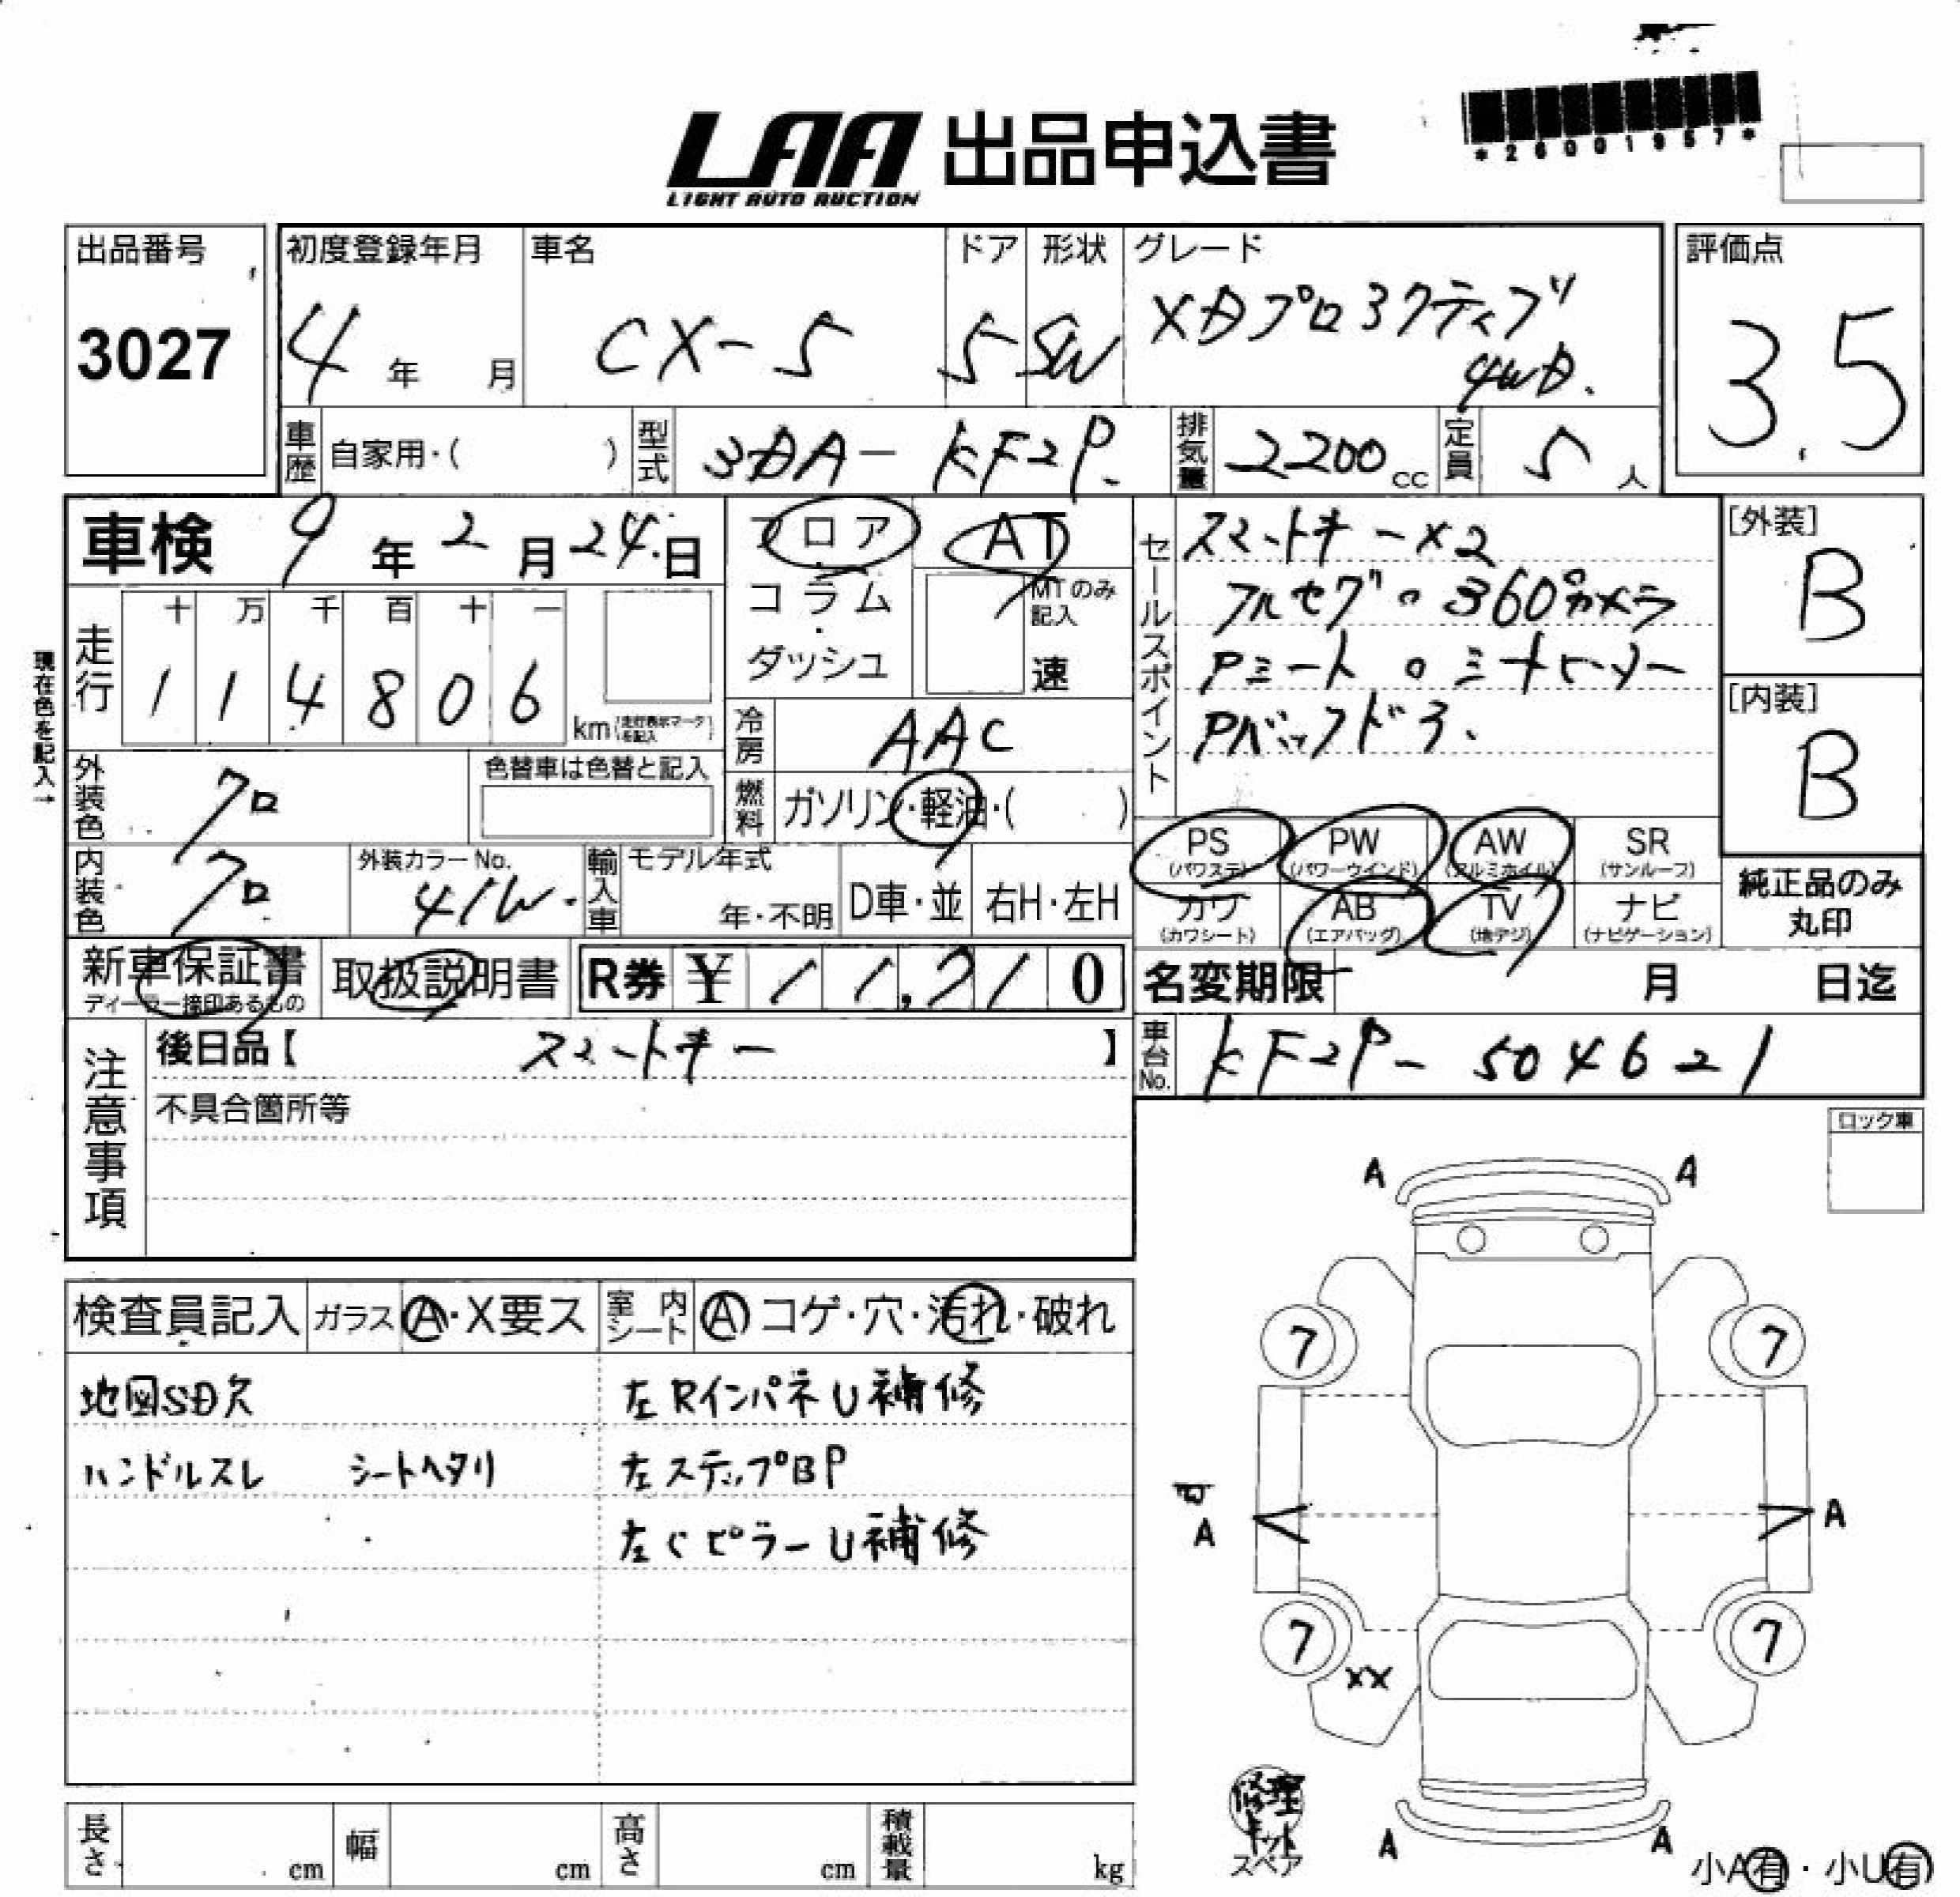 *26001957*
LAA 出品申込書
LIGHT AUTO AUCTION
出品番号
3027
初度登録年月
4年 月
車名
CX-5
ドア
5
形状
SW
グレード
XDプロアクティブ
4WD.
評価点
3.5
車歴
自家用・( )
型式
3DA-KF2P.
排気量
2200cc
定員
5人
車検 9年2月24日
走行
十 万 千 百 十 一
1 1 4 8 0 6 km
(走行表示マークを記入)
現在色を記入→
外装色
クロ
色替車は色替と記入
内装色
クロ
外装カラーNo.
41W.
輸入車
モデル年式
年・不明
D車・並
右H・左H
フロア
コラム
ダッシュ
AT
MTのみ記入
速
冷房
AAC
燃料
ガソリン・軽油・( )
セールスポイント
スマートキー×2
フルセグ。360°カメラ
Pシート。ミオトレーサー
Pバックドア、
[外装]
B
[内装]
B
PS
(パワステ)
PW
(パワーウインド)
AW
(アルミホイル)
SR
(サンルーフ)
カワ
(カワシート)
AB
(エアバッグ)
TV
(地デジ)
ナビ
(ナビゲーション)
純正品のみ
丸印
新車保証書
ディーラー捺印あるもの
取扱説明書
R券 ¥ 11,210
名変期限 月 日迄
注意事項
後日品【 スマートキー 】
不具合箇所等
車台No.
KF2P-504621
ロック車
検査員記入
ガラス Ⓐ・X要ス
室内シート Ⓐ コゲ・穴・汚れ・破れ
地図SD欠
ハンドルスレ シートヘタリ
左RインパネU補修
左ステップBP
左CピラーU補修
A
A
7
7
A
A
7
7
XX
A
A
修理キット
スペア
小A有・小U有
長さ cm
幅 cm
高さ cm
積載量 kg